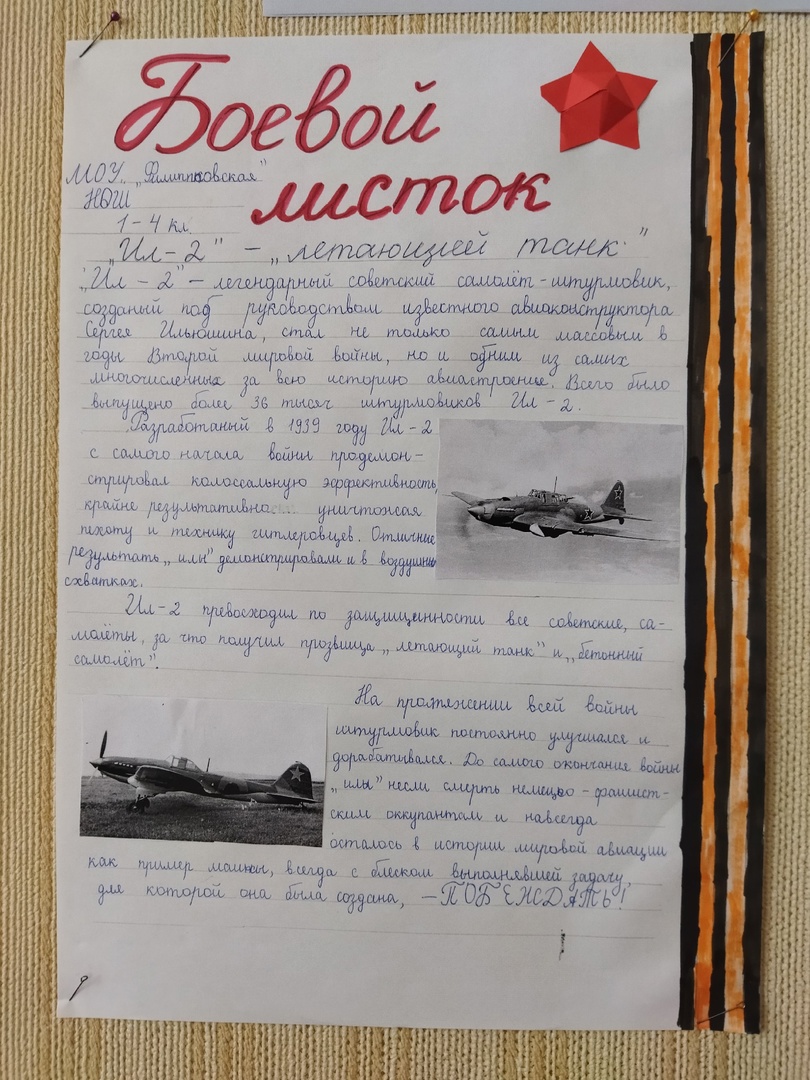 Боевой
листок
МОУ „Филипповская"
НОШ
1-4 кл.
„Ил-2" – „летающией танк"
„Ил – 2" – легендарный советский самолёт-штурмовик,
созданый под руководством известного авиаконструктора
Сергея Ильюшина, стал не только самым массовым в
годы Второй мировой войны, но и одним из самых
многочисленных за всю историю авиастроение. Всего было
выпущено более 36 тысяч штурмовиков Ил-2.
Разработаный в 1939 году Ил-2
с самого начала войны продемон-
стрировал колоссальную эффективность,
крайне результативно уничтожая
пехоту и технику гитлеровцев. Отличние
результать „илы" демонстрировали и в воздушни
схватках.
Ил-2 превосходил по защищенности все советские, са-
молёты, за что получил прозвища „летающий танк" и „бетонный
самолёт".
На протяжении всей войны
штурмовик постоянно улучшался и
дорабатывался. До самого окончание войны
„илы" несли смерть немецко-фашист-
ским оккупантам и навсегда
осталось в истории мировой авиации
как пример машины, всегда с блеском выполнявшей задачу,
для которой она была создана, – ПОБЕЖДАТЬ!